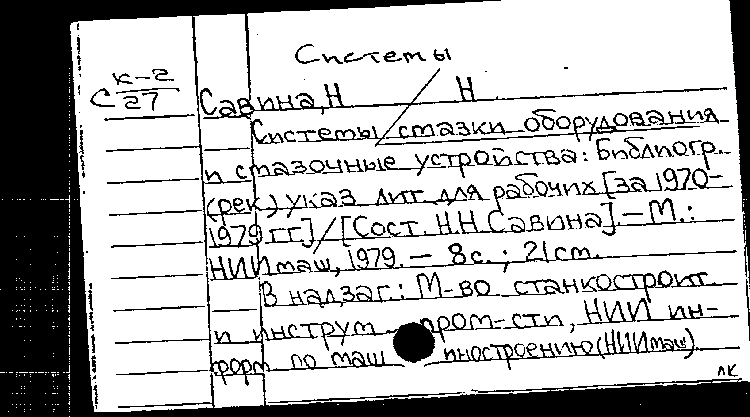 Системы
К-2
С 27
Савина, Н Н
Системы смазки оборудования
и смазочные устройства: Библиогр.
(рек.) указ лит. для рабочих [за 1970-
1979 гг.] / [Сост. Н.Н. Савина]. – М.:
НИИмаш, 1979. – 8 с. ; 21 см.
В надзаг.: М-во станкостроит.
и инструм. пром-сти, НИИ ин-
форм по маш иностроению (НИИмаш).
лк